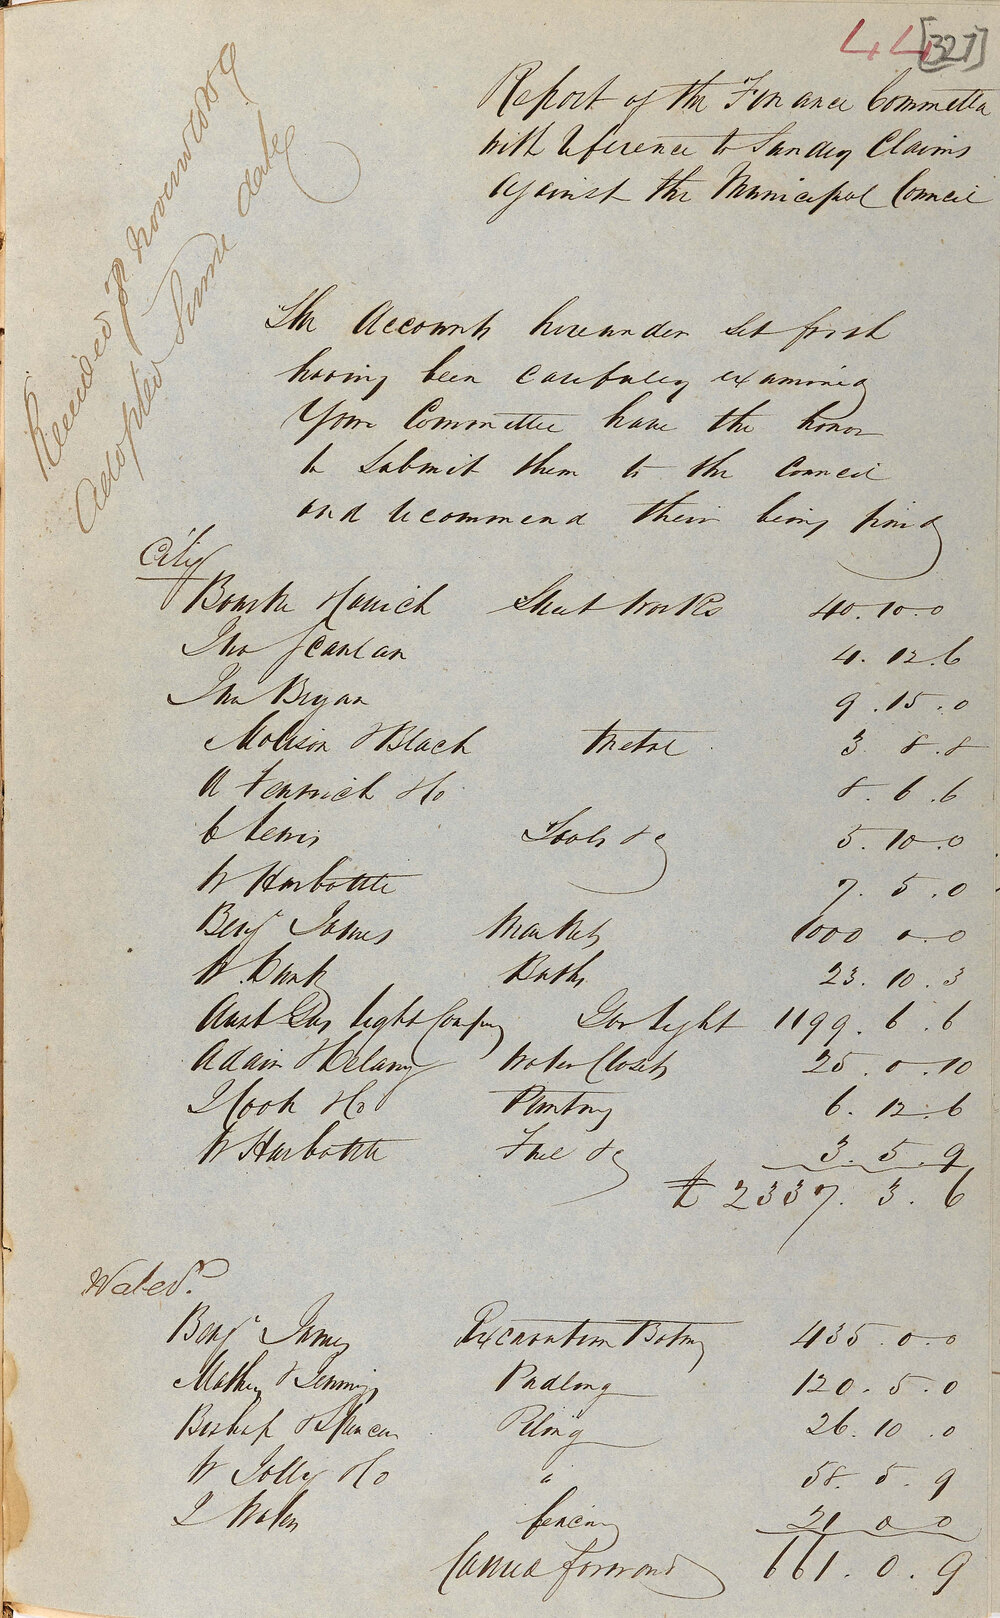 44 [327]
Report of the Finance Committee
with reference to Sundry Claims
against the Municipal Council
Received 9th November 1858
Adopted Same date
The Accounts hereunder Set forth
having been Carefully examined
Your Committee have the honor
to Submit them to the Council
and recommend their being paid
City
Bourke Street works 40.10.0
Jno Scanlan 4.12.6
Jno Bryan 9.15.0
Molison & Black Metal 3 8.8
A Fenwick & Co 8.6.6
C Lewis Tools &c 5.10.0
W Harbottle 7.5.0
Benj James Markets 1000 0.0
W. Baths 23.10.3
Aust Gas light Company Gas light 1199.6.6
Adair & Delany Water Closets 25.0.10
J Cook & Co Printing 6.12.6
W Harbottle Fuel &c 3.5.9
£ 2337.3.6
Water.
Benj James Excavation Botany 435.0.0
Mathew & Jennings Pudling 120.5.0
Bishop & Spencer Piling 26.10.0
W Jolly & Co " 58.5.9
J fencing 21 0 0
Carried forward 661.0.9